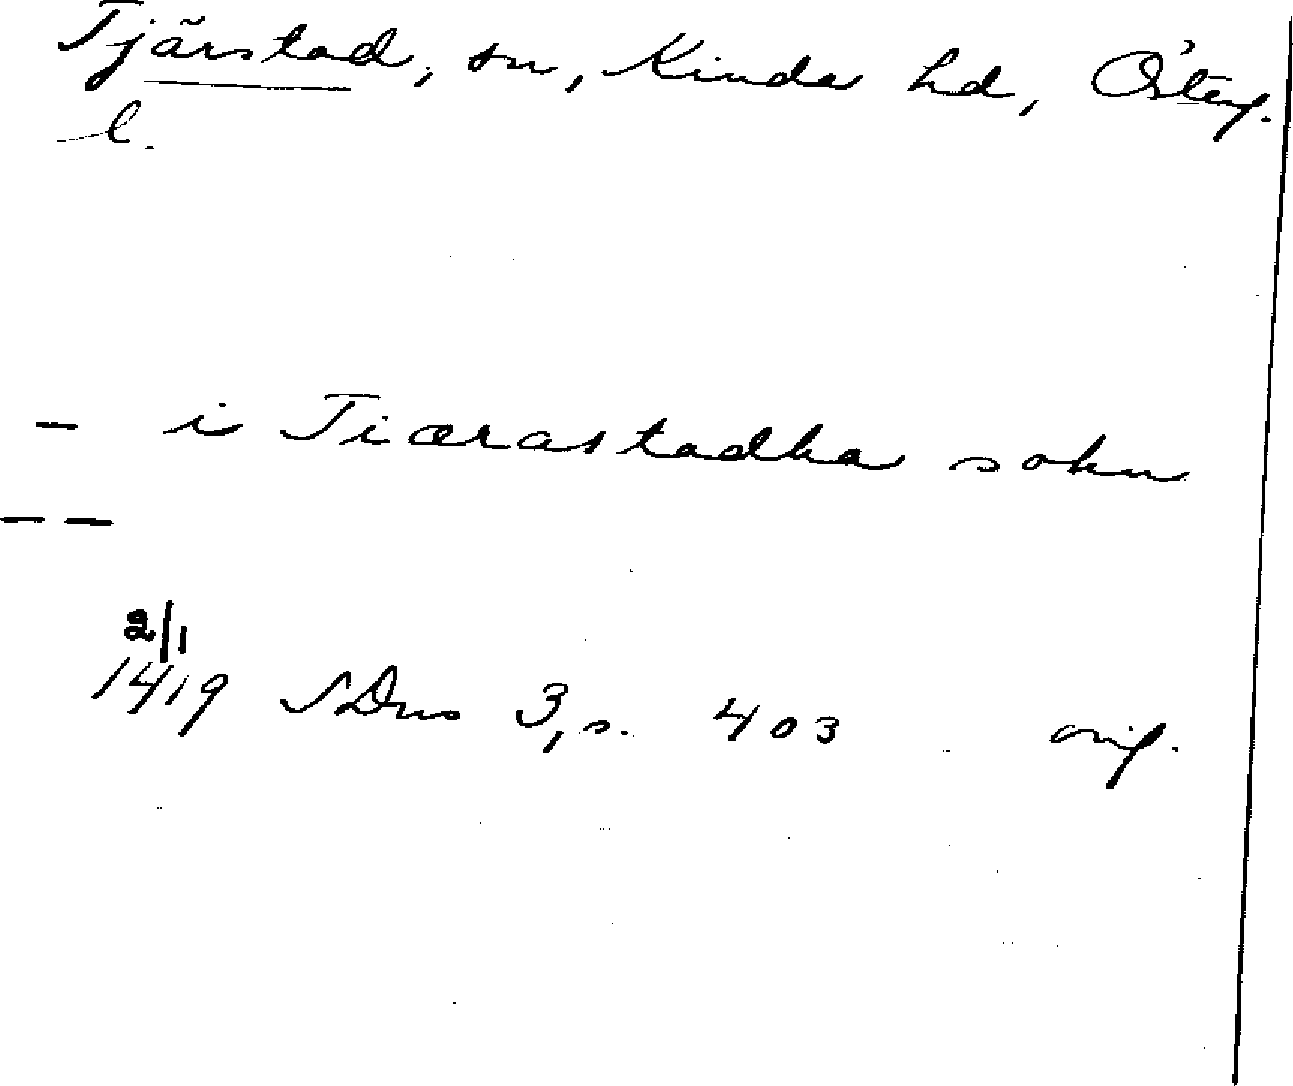 Tjärstad, sn, Kinda hd, Österg.
l.
- i Tiærastadha sokn
- -
2/1
1419 SDns 3, s. 403 orig.